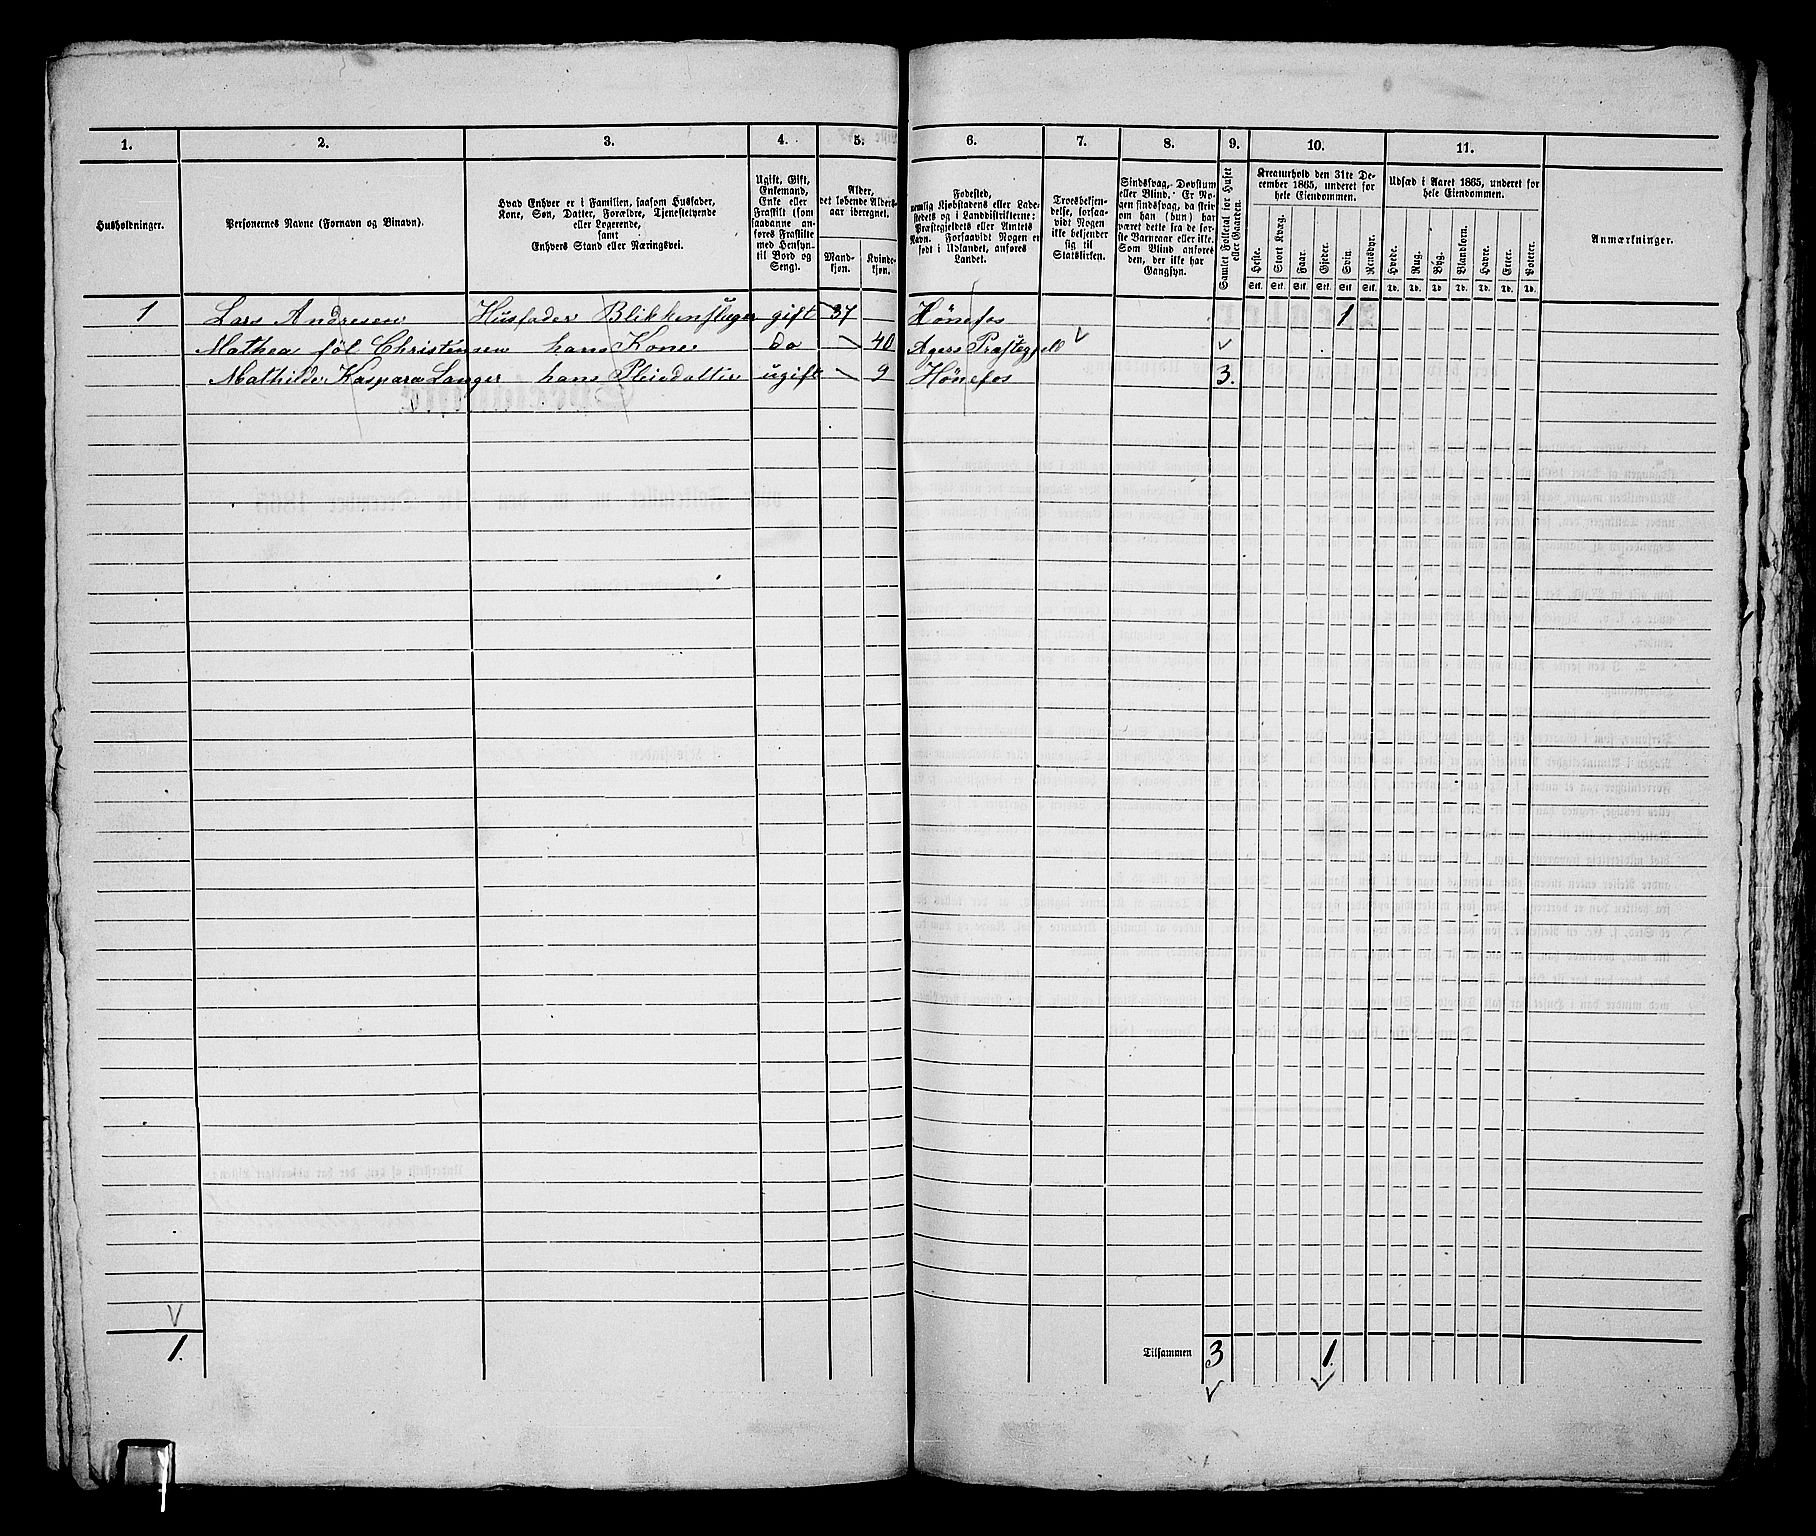 1. 2. 3. 4. 5. 6. 7. 8. 9. 10. 11.
Husholdninger.
Personernes Navne (Fornavn og Binavn).
Hvad Enhver er i Familien, saasom Husfader,
Kone, Søn, Datter, Forældre, Tjenestetyende
eller Logerende,
samt
Enhvers Stand eller Næringsvei.
Ugift, Gift,
Enkemand,
Enke eller
Fraskilt (som
saadanne an-
føres Fraskilte
med Hensyn
til Bord og
Seng).
Alder,
det løbende Alders-
aar iberegnet.
Mand-
kjøn.
Kvinde-
kjøn.
Fødested,
nemlig Kjøbstadens eller Lade-
stedets og i Landdistrikterne:
Præstegjeldets eller Amtets
Navn. Forsaavidt Nogen er
født i Udlandet, anføres
Landet.
Trosbekjen-
delse, forsaa-
vidt Nogen
ikke bekjender
sig til
Statskirken.
Sindssvag, Døvstum
eller Blind. Er No-
gen sindssvag, da skriv
om han (hun) har
været dette fra de før-
ste Barneaar eller ikke.
Som Blind anføres
den, der ikke har
Gangsyn.
Samlet Folketal for Huset
eller Gaarden.
Kreaturhold den 31te De-
cember 1865, underet for
hele Eiendommen.
Heste. Stort Kvæg. Faar. Gjeder. Svin. Rensdyr.
Stk. Stk. Stk. Stk. Stk. Stk.
Udsæd i Aaret 1865, underet for
hele Eiendommen.
Hvede. Rug. Byg. Blandkorn. Havre. Erter. Poteter.
Td. Td. Td. Td. Td. Td. Td.
Anmærkninger.
1 Lars Andresen Husfader Blikkenslager gift 37 Hönefos 1
Mathea föl Christensen hans Kone do 40 Agers Præstegjeld
Mathilde Kaspara Langer hans Pleiedatter ugift 9 Hönefos 3.
1.
Tilsammen 3 1.